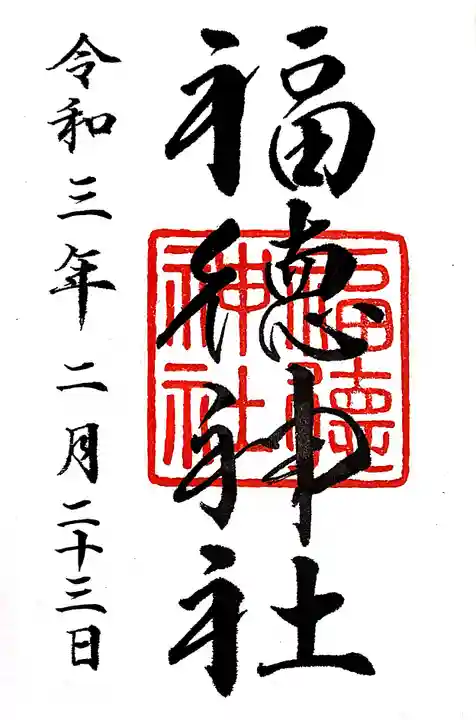 福徳神社
令和三年二月二十三日
福徳
神社